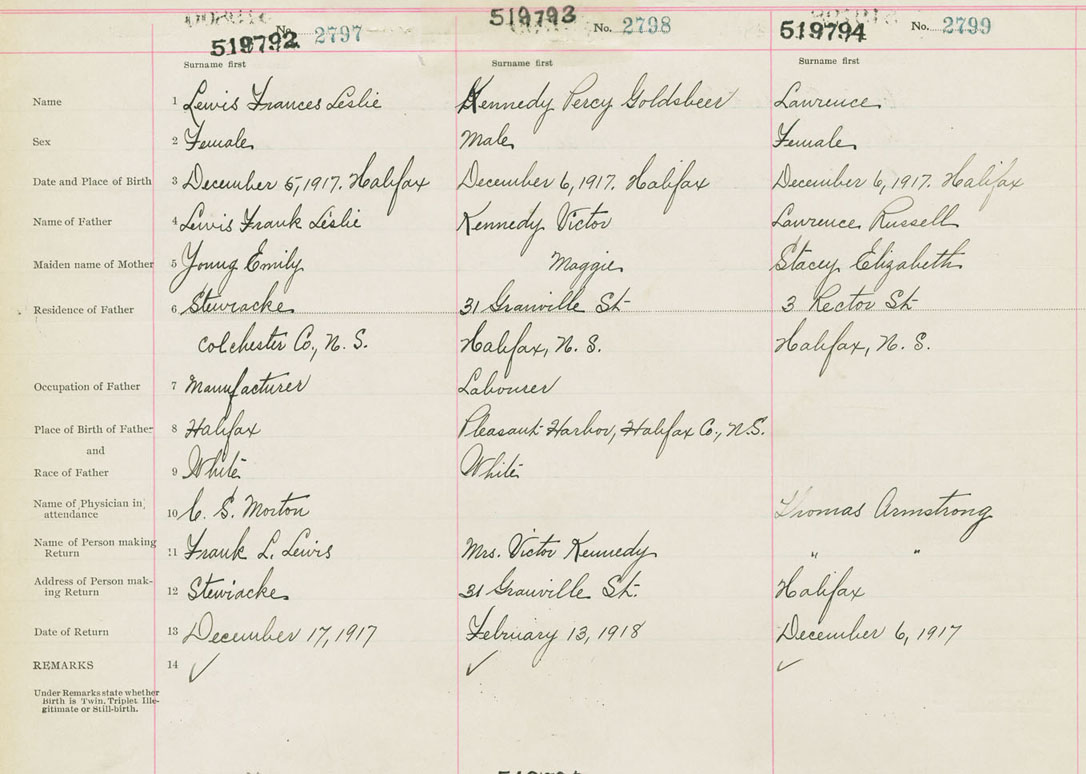 519792 No. 2797 519793 No. 2798 519794 No. 2799
Surname first Surname first Surname first
Name 1 Lewis Frances Leslie Kennedy Percy Goldsbeer Lawrence
Sex 2 Female Male Female
Date and Place of Birth 3 December 5, 1917. Halifax December 6, 1917. Halifax December 6, 1917. Halifax
Name of Father 4 Lewis Frank Leslie Kennedy Victor Lawrence Russell
Maiden name of Mother 5 Young Emily Maggie Stacey Elizabeth
Residence of Father 6 Stewiacke 31 Granville St. 3 Rector St.
Colchester Co., N. S. Halifax, N. S. Halifax, N. S.
Occupation of Father 7 Manufacturer Labourer
Place of Birth of Father 8 Halifax Pleasant Harbor, Halifax Co., N.S.
and
Race of Father 9 White White
Name of Physician in
attendance 10 C. S. Morton Thomas Armstrong
Name of Person making
Return 11 Frank L. Lewis Mrs. Victor Kennedy " "
Address of Person mak-
ing Return 12 Stewiacke 31 Granville St. Halifax
Date of Return 13 December 17, 1917 February 13, 1918 December 6, 1917
REMARKS 14 ✓ ✓ ✓
Under Remarks state whether
Birth is Twin, Triplet Ille-
gitimate or Still-birth.